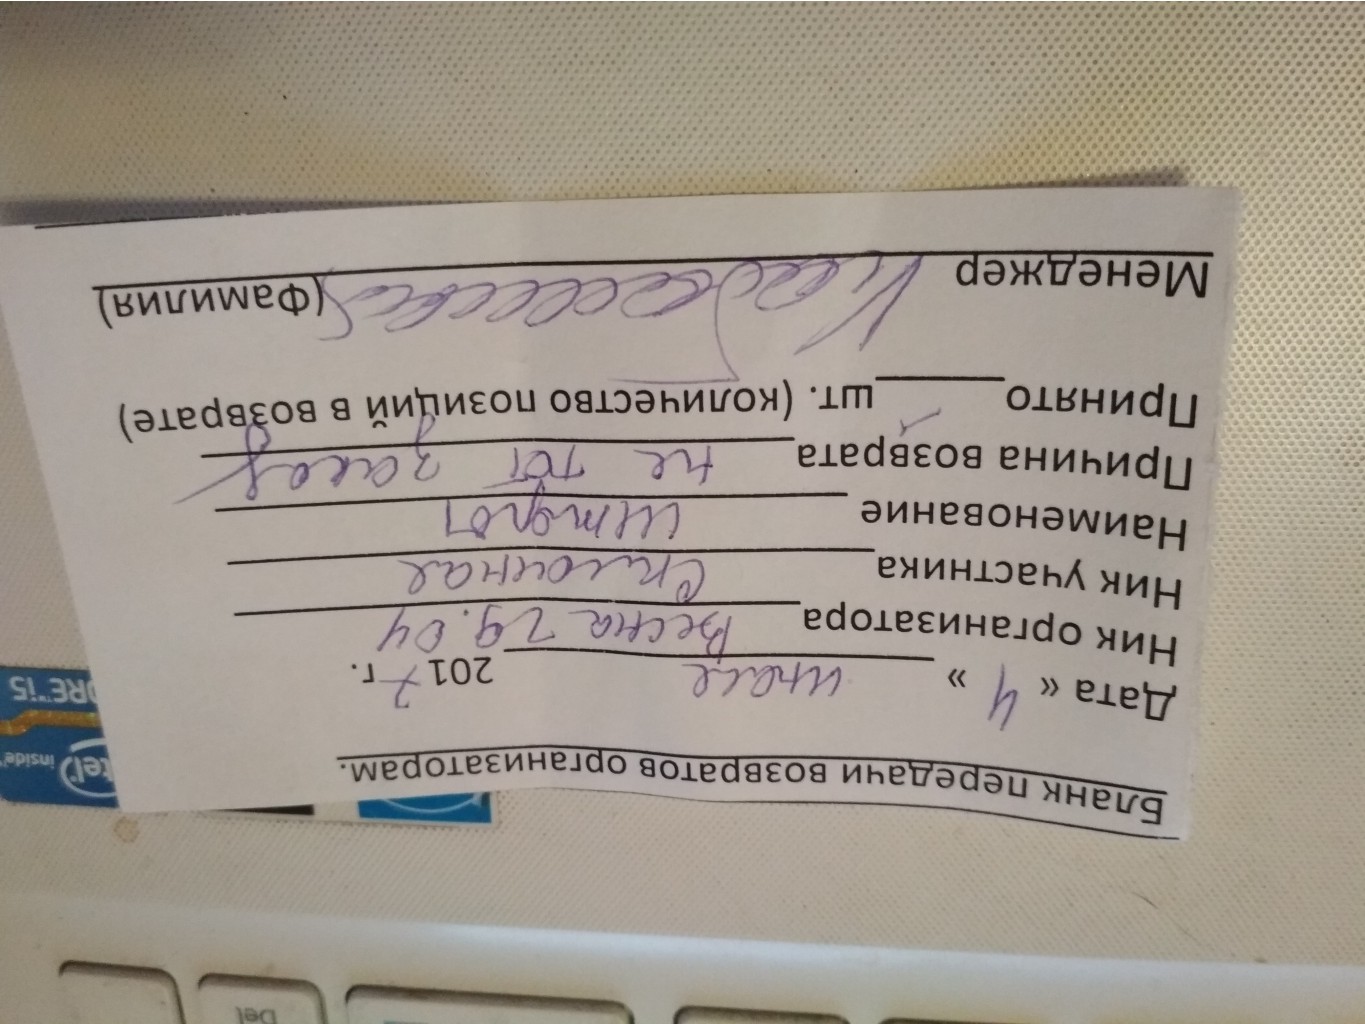 Бланк передачи возвратов организаторам.
Дата « 4 » июля 2017 г.
Ник организатора Весна 29.04
Ник участника
Наименование
Причина возврата не тот заказ
Принято шт. (количество позиций в возврате)
Менеджер (Фамилия)
inside
CORE i5
Del